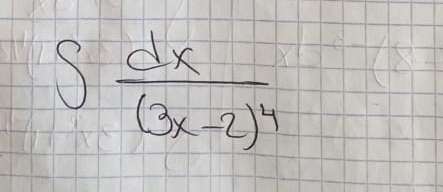 ∫ dx
(3x-2)⁴